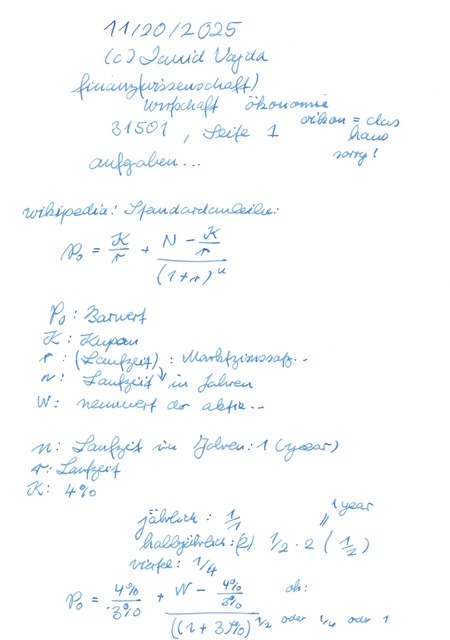 11/20/2025
(c) David Vajda
finanz(wissenschaft)
wirtschaft ökonomie
oikon = das haus
sorry!
31501, Seite 1
aufgaben...
wikipedia: Standardanleihe:
P₀ = K/r + (N - K/r)/(1+r)ⁿ
P₀: Barwert
K: Kupon
r: (Laufzeit): Marktzinssatz..
n: Laufzeit in Jahren
N: nennwert der aktie..
n: Laufzeit im Jahren: 1 (year)
r: Laufzeit
K: 4%
1 year
jährlich: 1/1
halbjährlich: (2) 1/2 · 2 (1/2)
viertel: 1/4
P₀ = 4%/3% + (N - 4%/3%)/((1+3%)^1/2 oder 1/4 oder 1
oh: